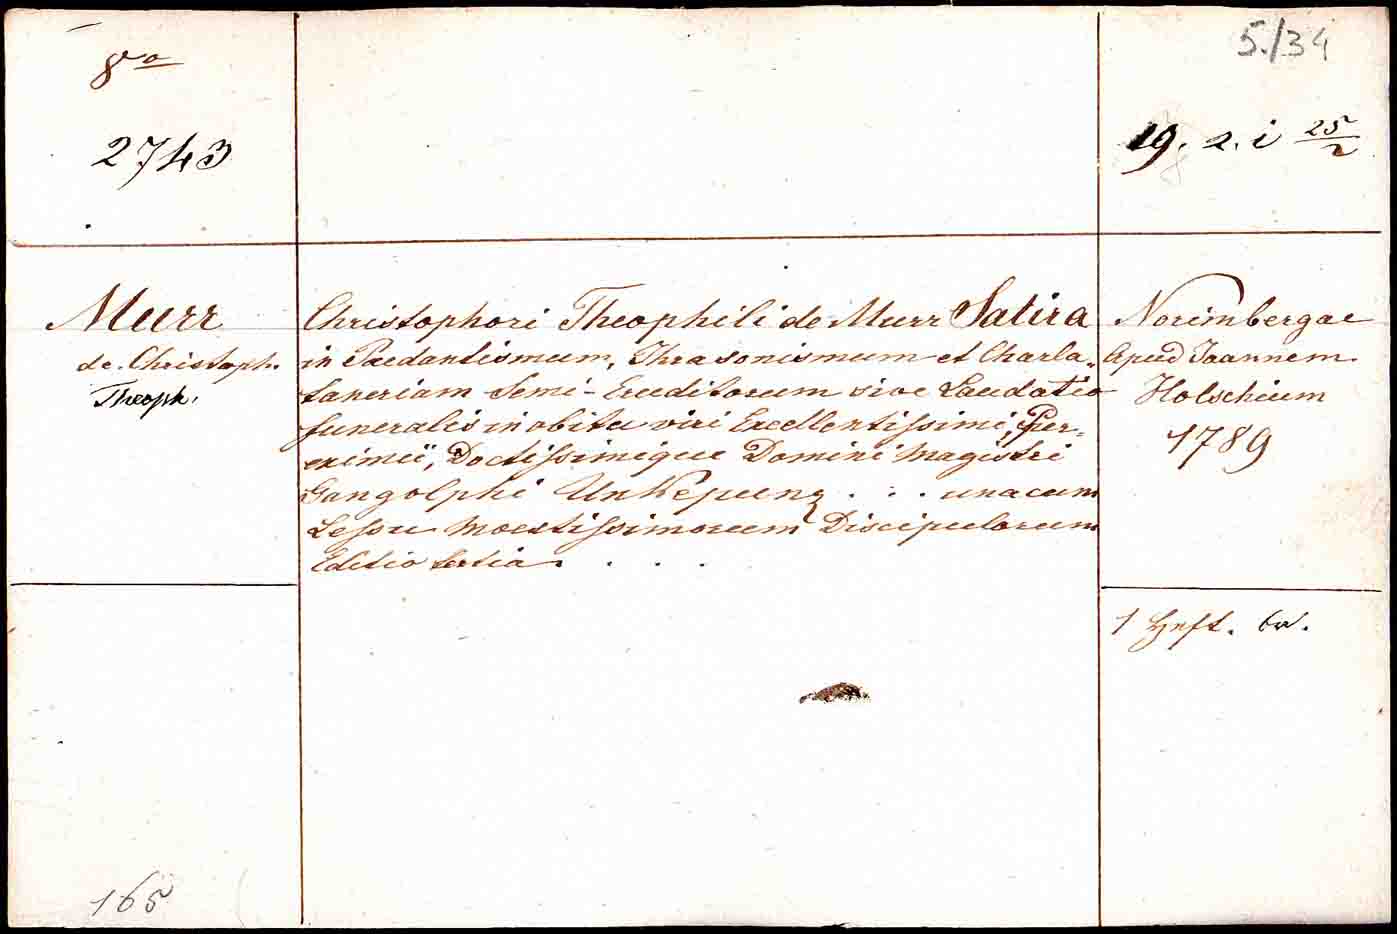 8vo
5./34
2743
19. 2. i 25/2
Murr
de Christoph.
Theoph.
Christophori Theophili de Murr Satira
in Paedantismum, Thrasonismum et Charla„
taneriam Semi-Eruditorum sive Laudatio
funeralis in obitu viri Excellentissimi, Per-
eximii, Doctissimique Domini Magistri
Gangolphi Unkepunz . . . unacum
Lessu Moestissimorum Discipulorum
Editio tertia. . . . .
Norimbergae
Apud Joannem
Holscheium
1789
1 Heft. br.
165